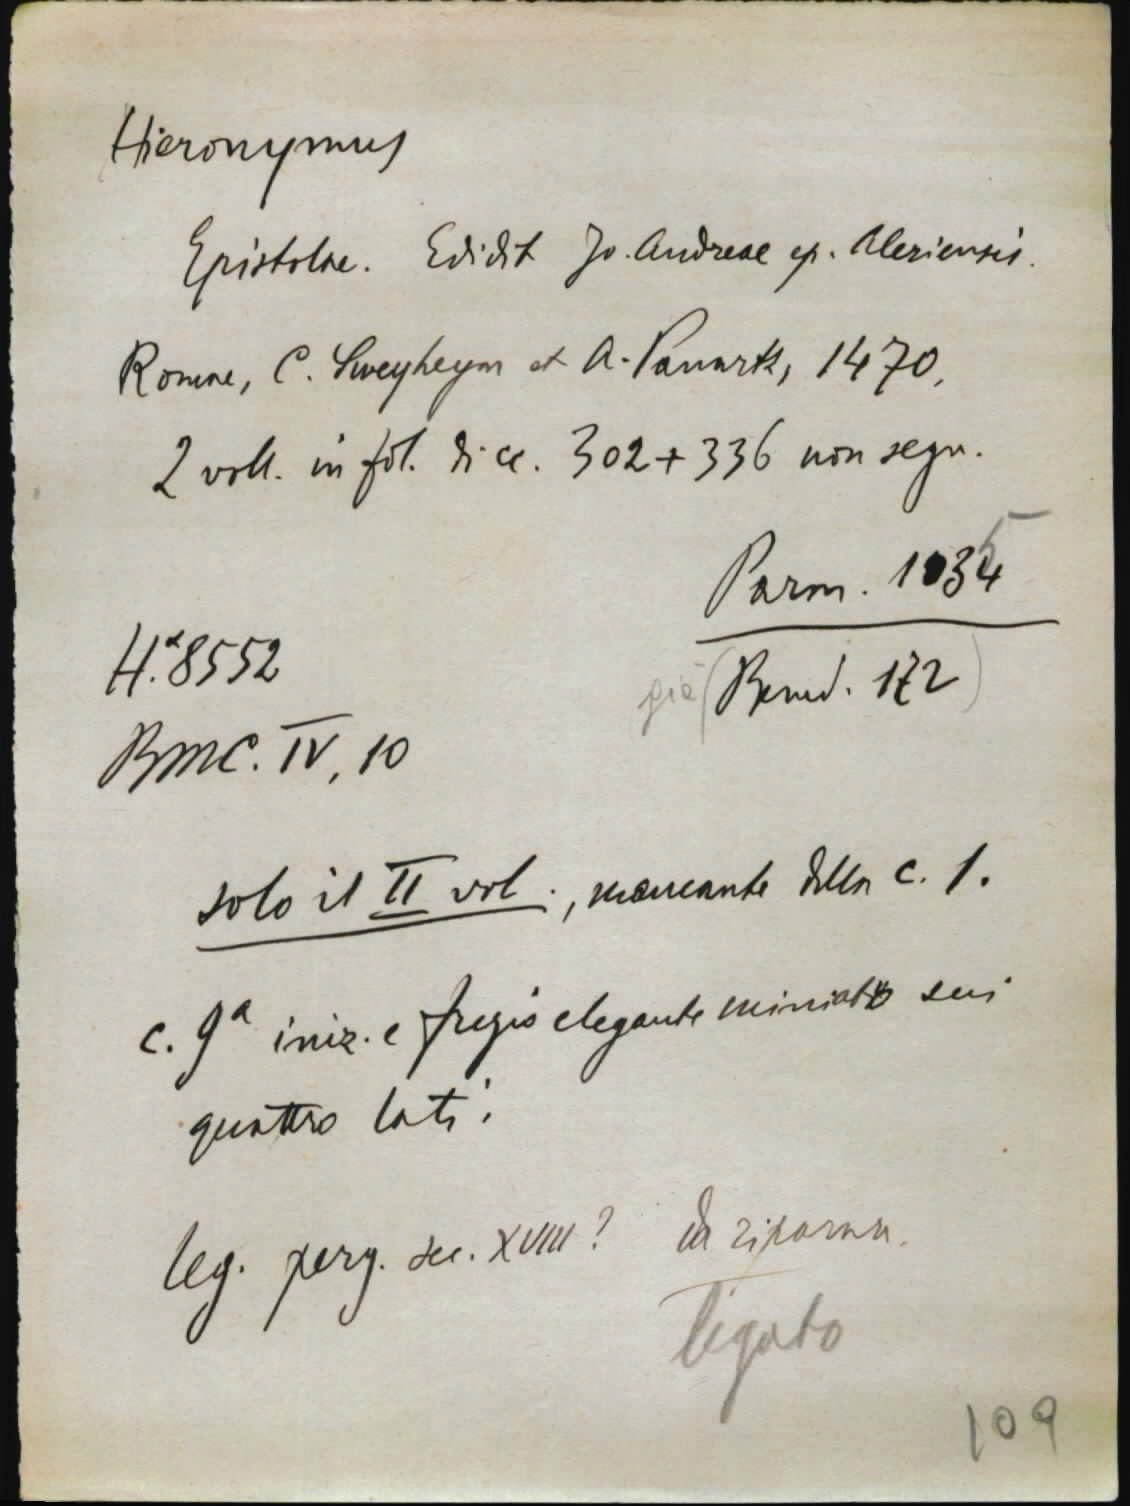 Hieronymus
Epistolae. Edidit Jo. Andreae ep. Aleriensis.
Romae, C. Sweyheym et A. Panartz, 1470,
2 voll. in fol. di cc. 302 + 336 non segn.
Parm. 1035
H.* 8552
già (Bemd. 172)
BMC. IV, 10
solo il II vol., mancante della c. 1.
c. 9ª iniz. e fregio elegante miniato sui
quattro lati.
leg. perg. sec. XVIII? da riparare.
legato
109